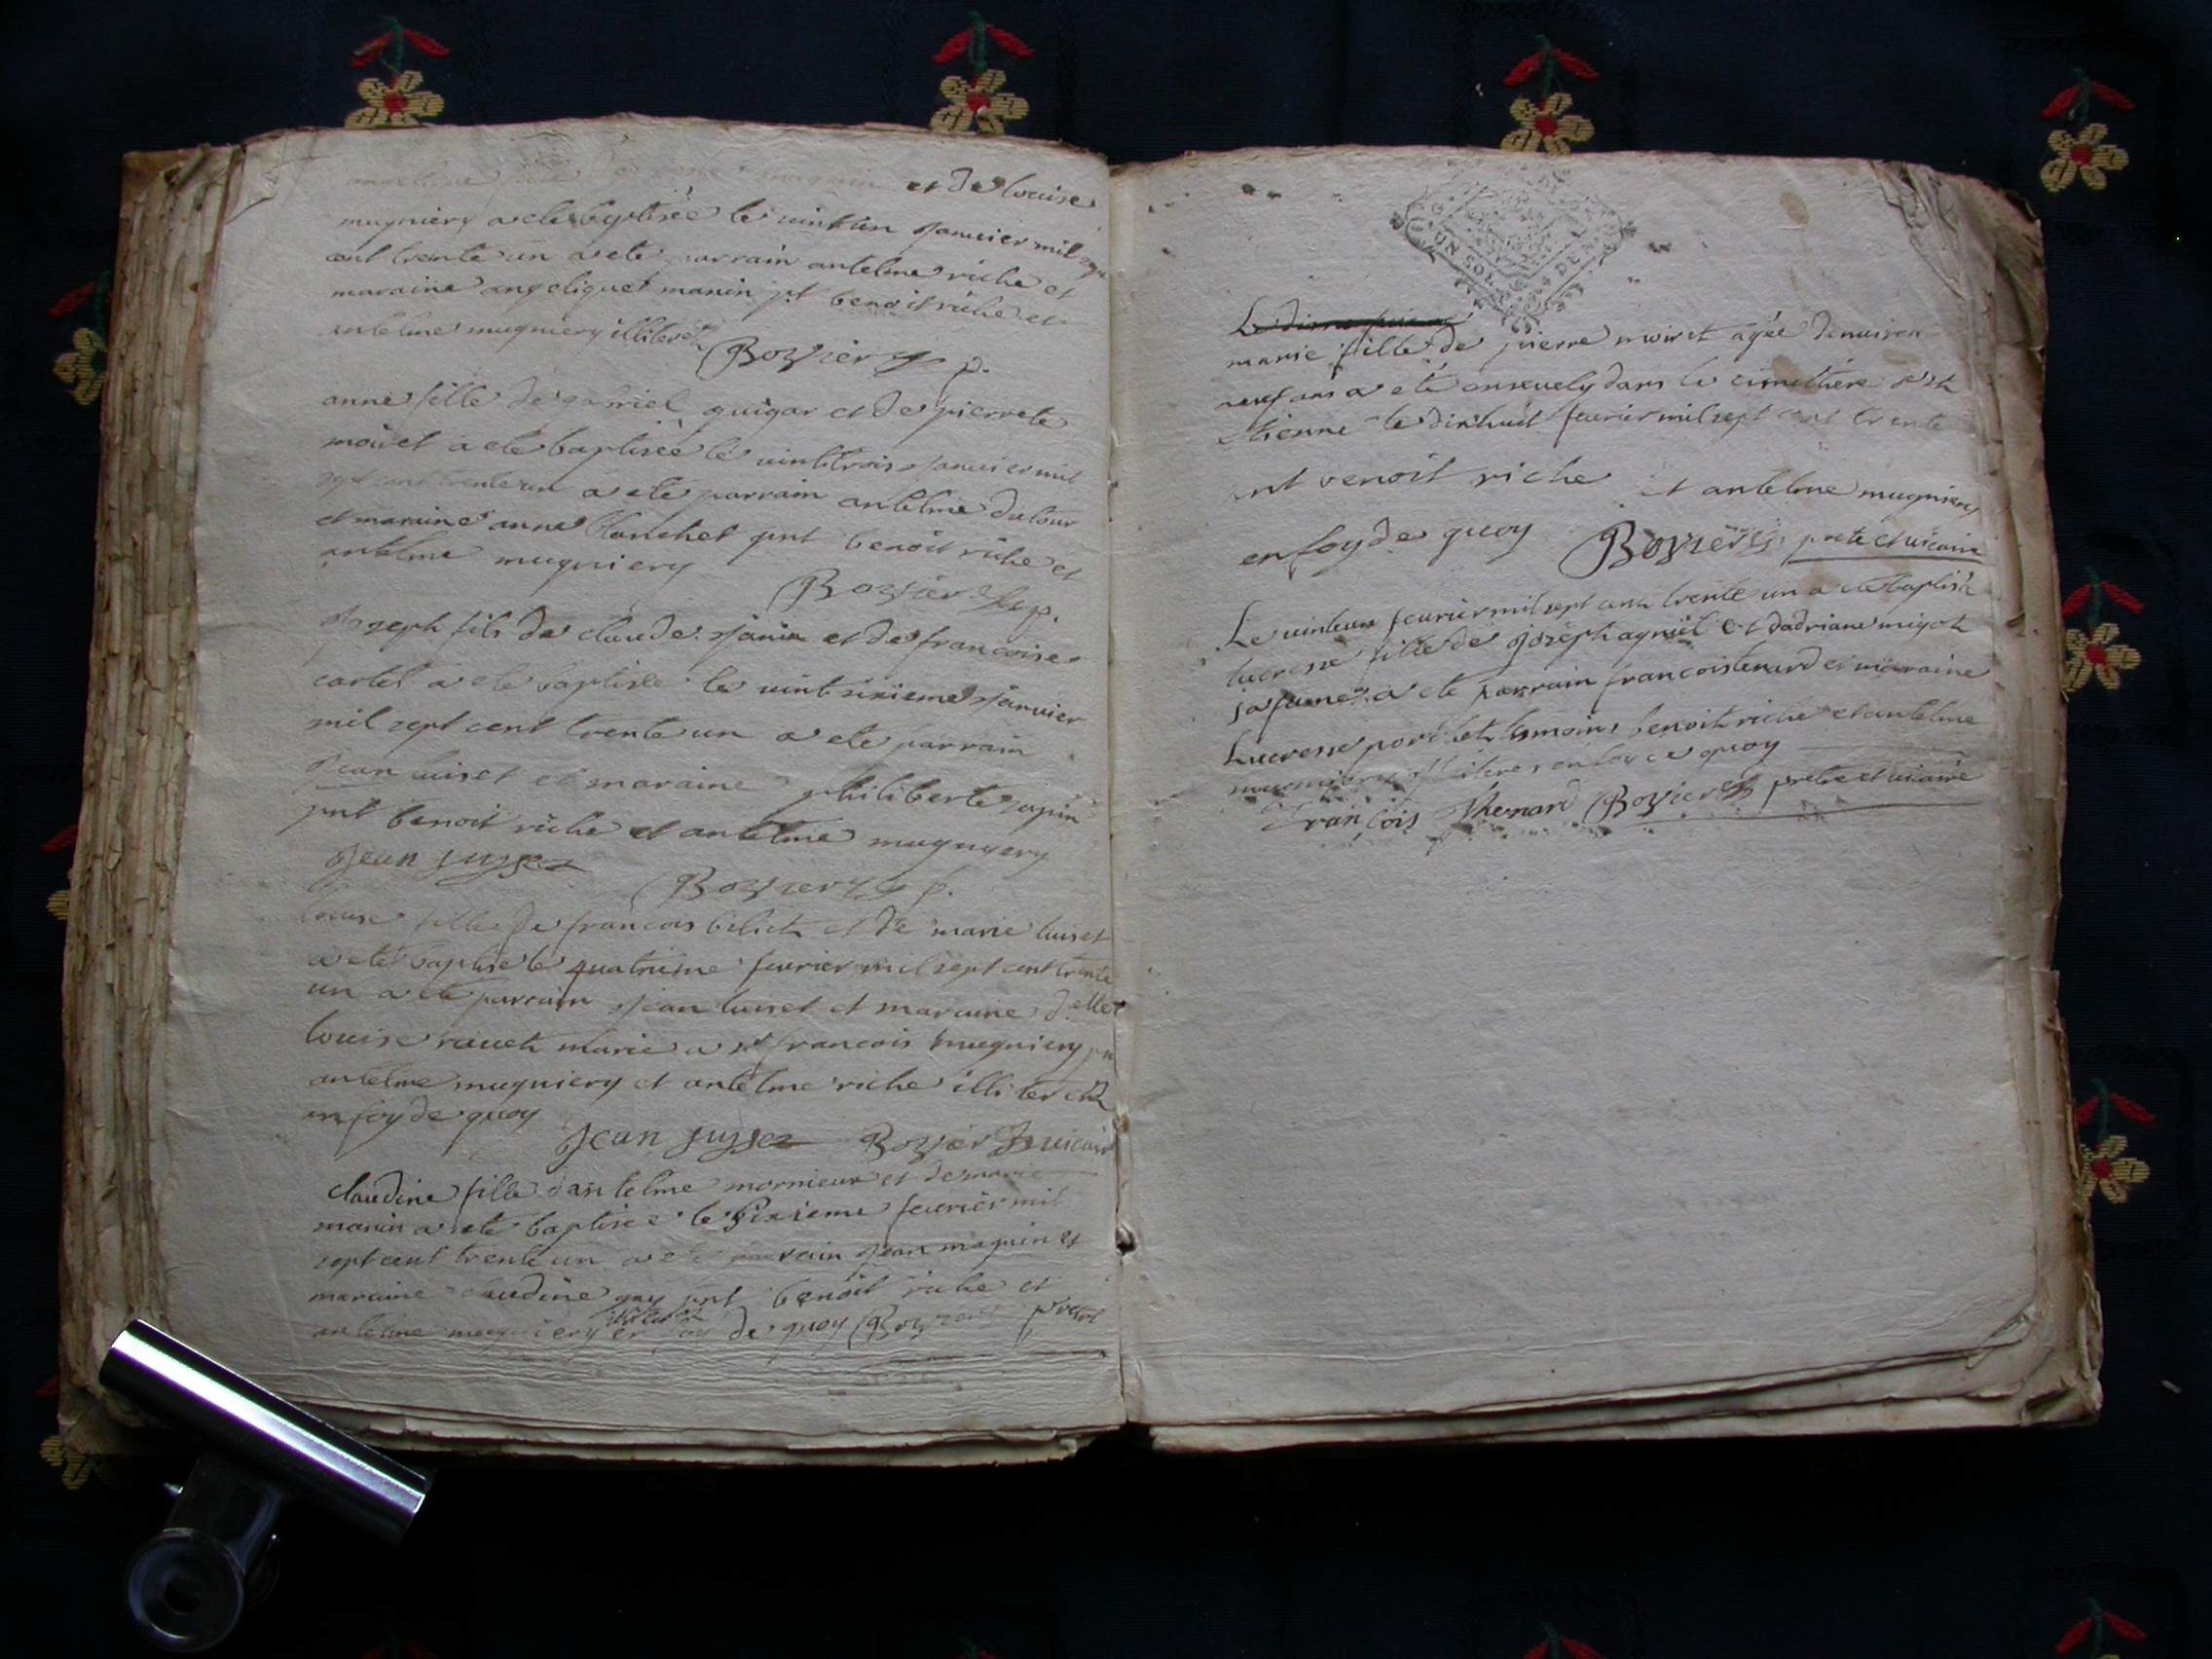 et de louise
mugniery a ete baptisée le vint un janvier mil sept
cent trente un a ete parrain antelme riche et
maraine angelique manin pt benoit riche et
antelme mugniery illiteres
Bozier p.
anne fille de gabriel guigar et de pierrete
moiret a ete baptisée le vintetrois janvier mil
sept cent trente un a ete parrain antelme dutour
et maraine anne blanchet pnt benoit riche et
antelme mugniery
Bozier p.
Joseph fils de claude janin et de francoise
cartel a ete baptisse le vintsixieme janvier
mil sept cent trente un a ete parrain
jean luiset et maraine philiberte
pnt benoit riche et antelme mugnyery
Jean luyset
Bozier p.
louise fille de francois biliet et de marie luiset
a ete baptise le quatrieme fevrier mil sept cent trente
un a ete parrain jean luiset et maraine delle
louise marie a sr francois mugniery pnt
antelme mugniery et antelme riche illiteres
en foy de quoy
Jean luyset Bozier vicaire
claudine fille dantelme mornieux et de marie
manin a ete baptisée le sixieme fevrier mil
sept cent trente un a ete parrain jean maguin et
maraine claudine guy pnt benoit riche et
illiteres
antelme mugniery en foy de quoy Bozier pretre
UN SOL DEN
marie fille de pierre moiret agée denviron
neuf ans a eté ensevely dans le cimethiere de st
etienne le dixhuit fevrier mil sept cent trente
pnt benoit riche et antelme mugniery
en foy de quoy Bozier prete et vicaire
Le vinteun fevrier mil sept cent trente un a ete baptisée
lucresse fille de joseph agniel et dadriane migot
sa fame a ete parrain francois tenard et maraine
Lucresse temoins benoit riche et antelme
mugniery illiteres en foy de quoy
François thenard Bozier pretre et vicaire